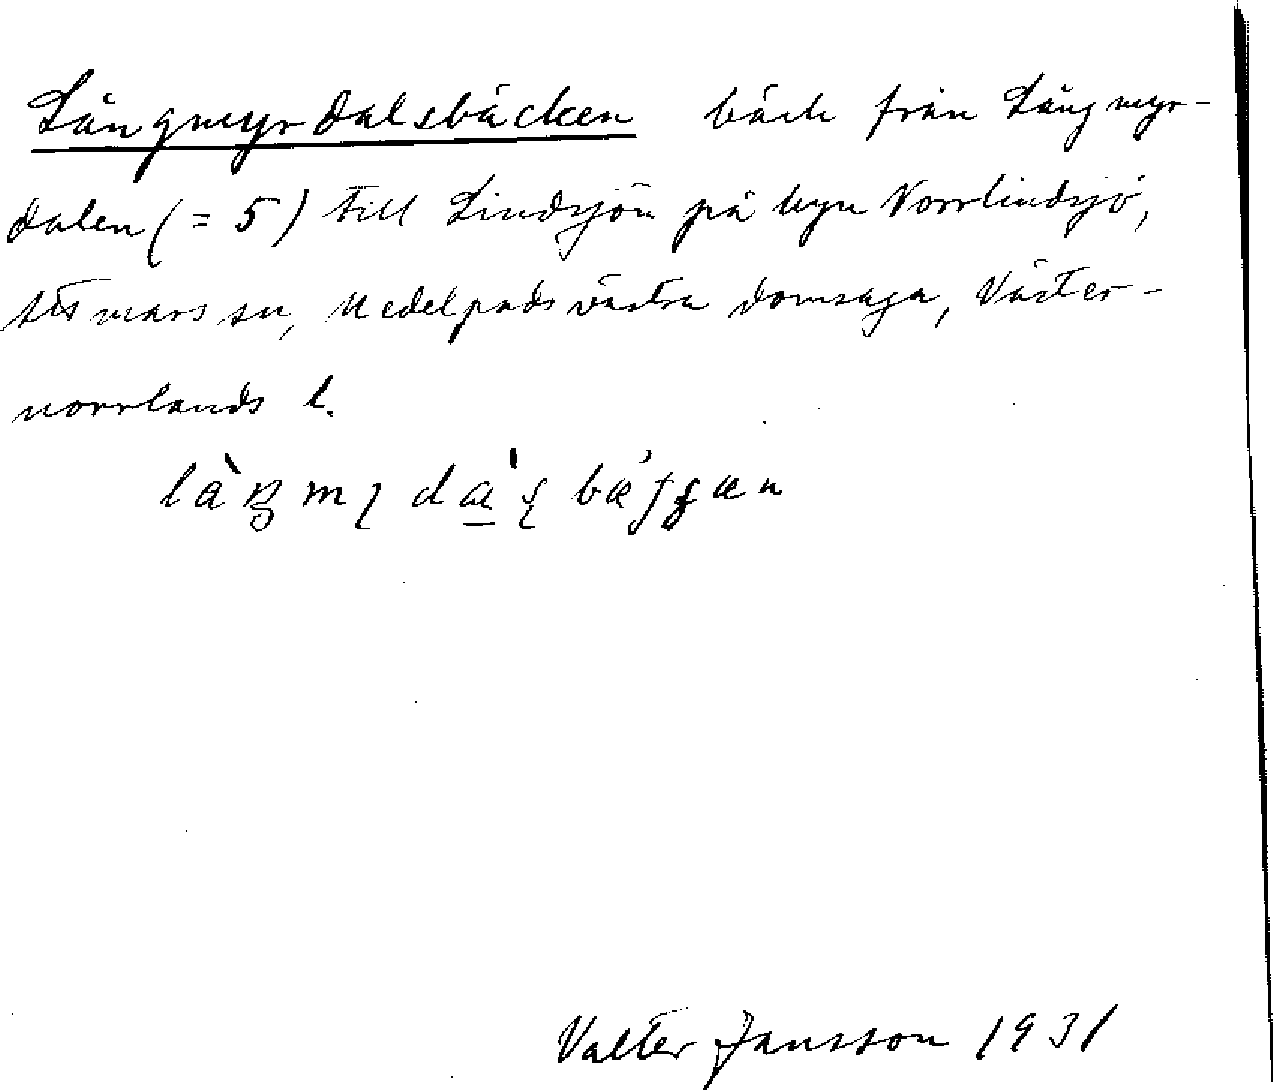 Långmyrdalsbäcken bäck från Långmyr-
dalen (= 5) till Lindsjön på byn Norrlindsjö,
sn, Medelpads västra domsaga, Väster-
norrlands l.
Valter Jansson 1931